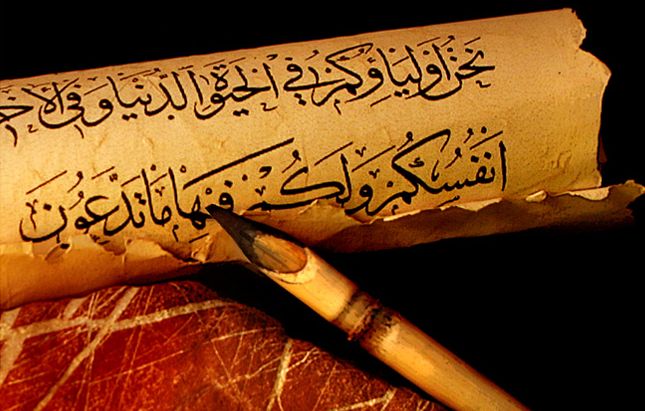 نَحْنُ أَوْلِيَاؤُكُمْ فِي الْحَيَوةِ الدُّنْيَا وَفِي الْآخ
اَنْفُسُكُمْ وَلَكُمْ فِيهَا مَا تَدَّعُونَ